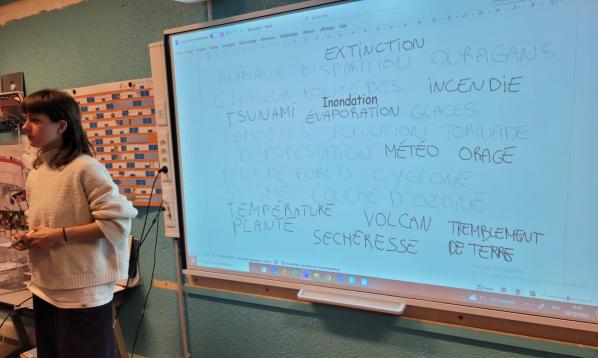 EXTINCTION
ANIMAUX DISPARITION OURAGANS
CHALEUR DES INCENDIE
TSUNAMI Inondation ÉVAPORATION GLACES
TEMPÊTES POLLUTION TORNADE
DÉFORESTATION MÉTÉO ORAGE
FEUX DE FORÊTS CYCLONE
SEISME COUCHE D'OZONE
TEMPÉRATURE VOLCAN TREMBLEMENT
PLANTE SECHERESSE DE TERRE